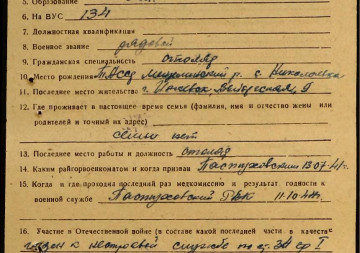 5. Образование
6. На ВУС 134
7. Должностная квалификация
8. Военное звание рядовой
9. Гражданская специальность столяр
10. Место рождения р. с. Николаевка
11. Последнее место жительства г. Ижевск
12. Где проживает в настоящее время семья (фамилия, имя и отчество жены или
родителей и точный их адрес)
семьи нет
13. Последнее место работы и должность столяр
14. Каким райгорвоенкоматом и когда призван Пастуховским 13.07.41 г.
15. Когда и где проходил последний раз медкомиссию и результат годности к
военной службе Пастуховский РВК 11.10.44 г.
16. Участие в Отечественной войне (в составе какой последней части в качестве
годен к нестроевой службе по ст. 34 гр I